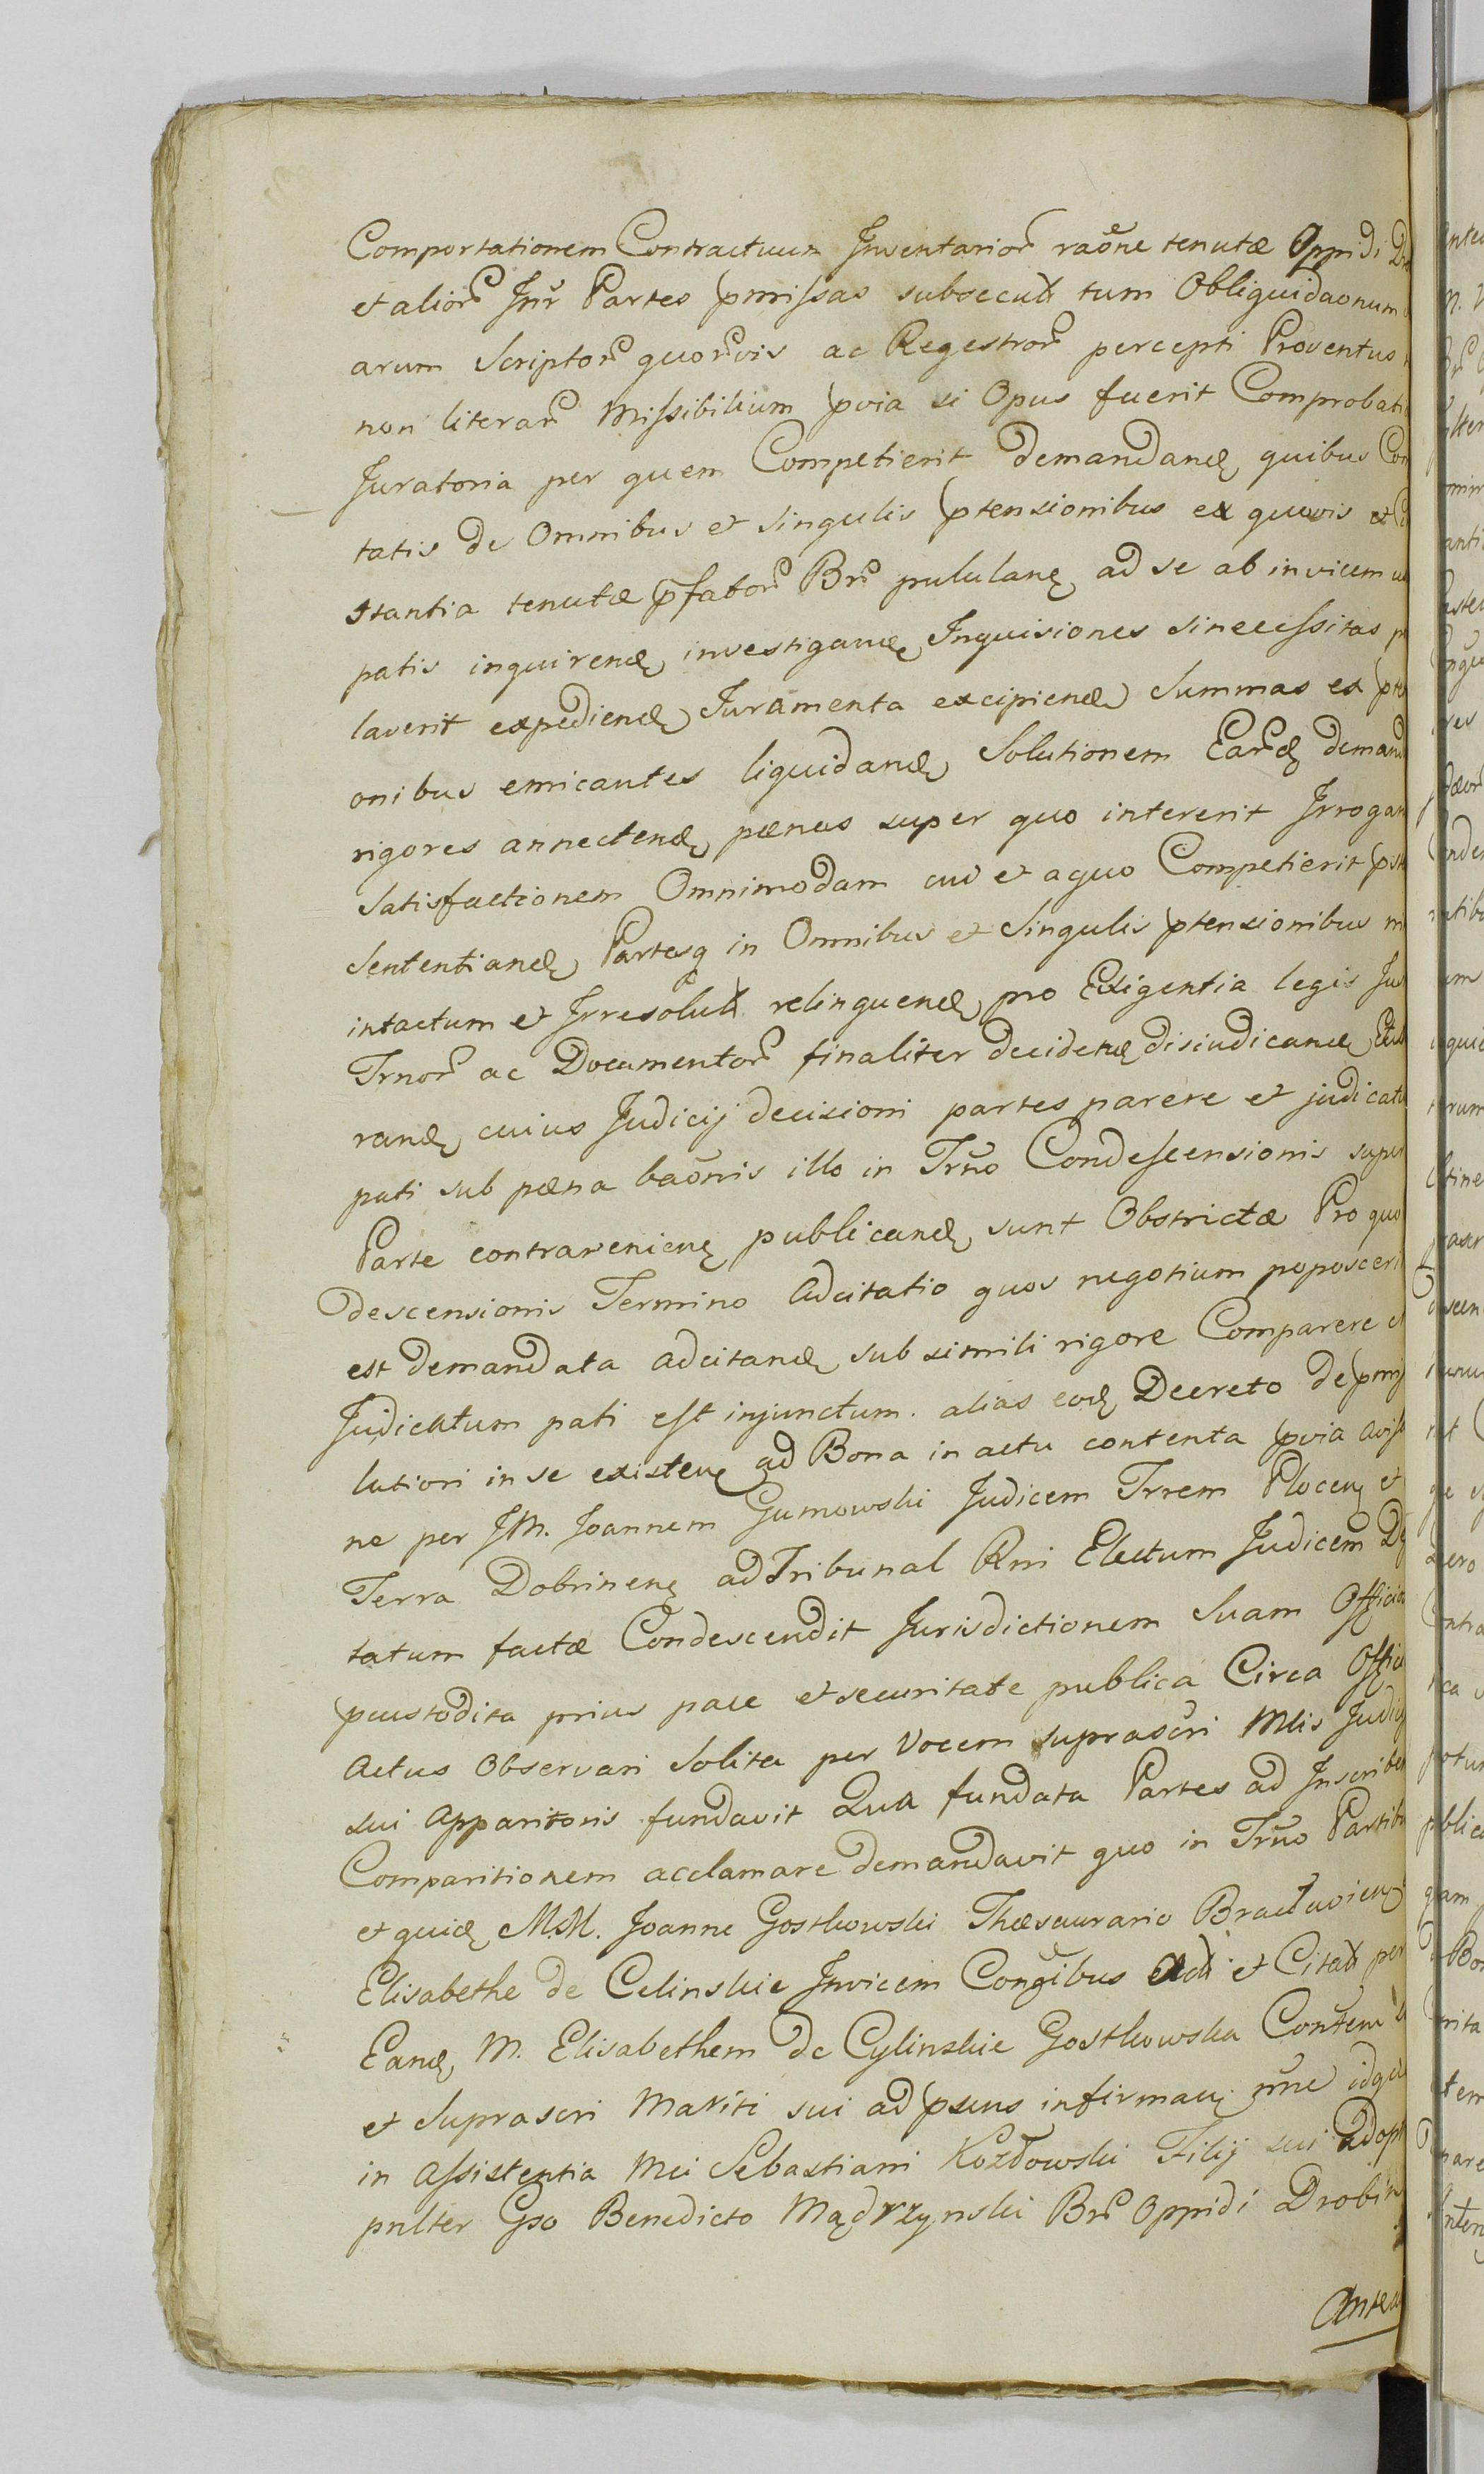 Comportationem Contractuum Inventarior raõne tenutæ Oppidi
et alior Inr Partes pmissas subsecut tum Obliquidaonum
arum Scriptor quorvis ac Regestror percepti Proventus
non literar Missibilium pvia si Opus fuerit Comprobati
Juratoria per quem Competierit demandand quibus Com
tatis de Omnibus et singulis ptensionibus ex quovis et
stantia tenutæ pfator Bnr pululan ad se ab invicem
patis inquirend investigand Inquisiones si necessitas
laverit expediend Juramenta excipiend Summas ex
onibus emicantes liquidand Solutionem Eard demand
rigores annectend pænas super quo intererit Irrogan
Satisfactionem Omnimodam cui et a quo Competierit
Sententiand Partesq in Omnibus et Singulis ptensionibus
intactum et Irresolut relinquend pro Exigentia legis Jur
Trnor ac Documentor finaliter decidend disiudicand
rand cuius Judicij decisioni partes parere et judicatu
pati sub pæna baõnis illo in Trño Condescensionis super
Parte contravenien publicand sunt Obstrictæ Pro quo
descensionis Termino Adcitatio quos negotium poposcerit
est demandata adcitand sub simili rigore Comparere et
Judicatum pati est injunctum. alias eod Decreto de
lutiori in se existen ad Bona in actu contenta pvia
ne per JM. Joannem Gumowski Judicem Trrem Plocen et
Terra Dobrinen ad Tribunal Rni Electum Judicem
tatum factæ Condescendit Jurisdictionem Suam Officio
pcustodita prius pace et securitate publica Circa Offici
actus Observari Solita per Vocem suprascri Mlis Judicij
sui Apparitoris fundavit Qua fundata Partes ad Inscriben
Comparitionem acclamare demandavit quo in Trño Partibus
et quid M.M. Joanne Gostkowski Thæsaurario Braclavien
Elisabethe de Celinskie Invicem Conĝibus Act et Citat per
Eand M. Elisabethem de Cylinskie Gostkowska Conrem
et Suprascri Mariti sui ad psens infirman nne
in Assistentia Mci Sebastiani Kozłowski Filij sui Adopt
pnlter Gso Benedicto Mądrzynski Bnr Oppidi Drobin
Anten